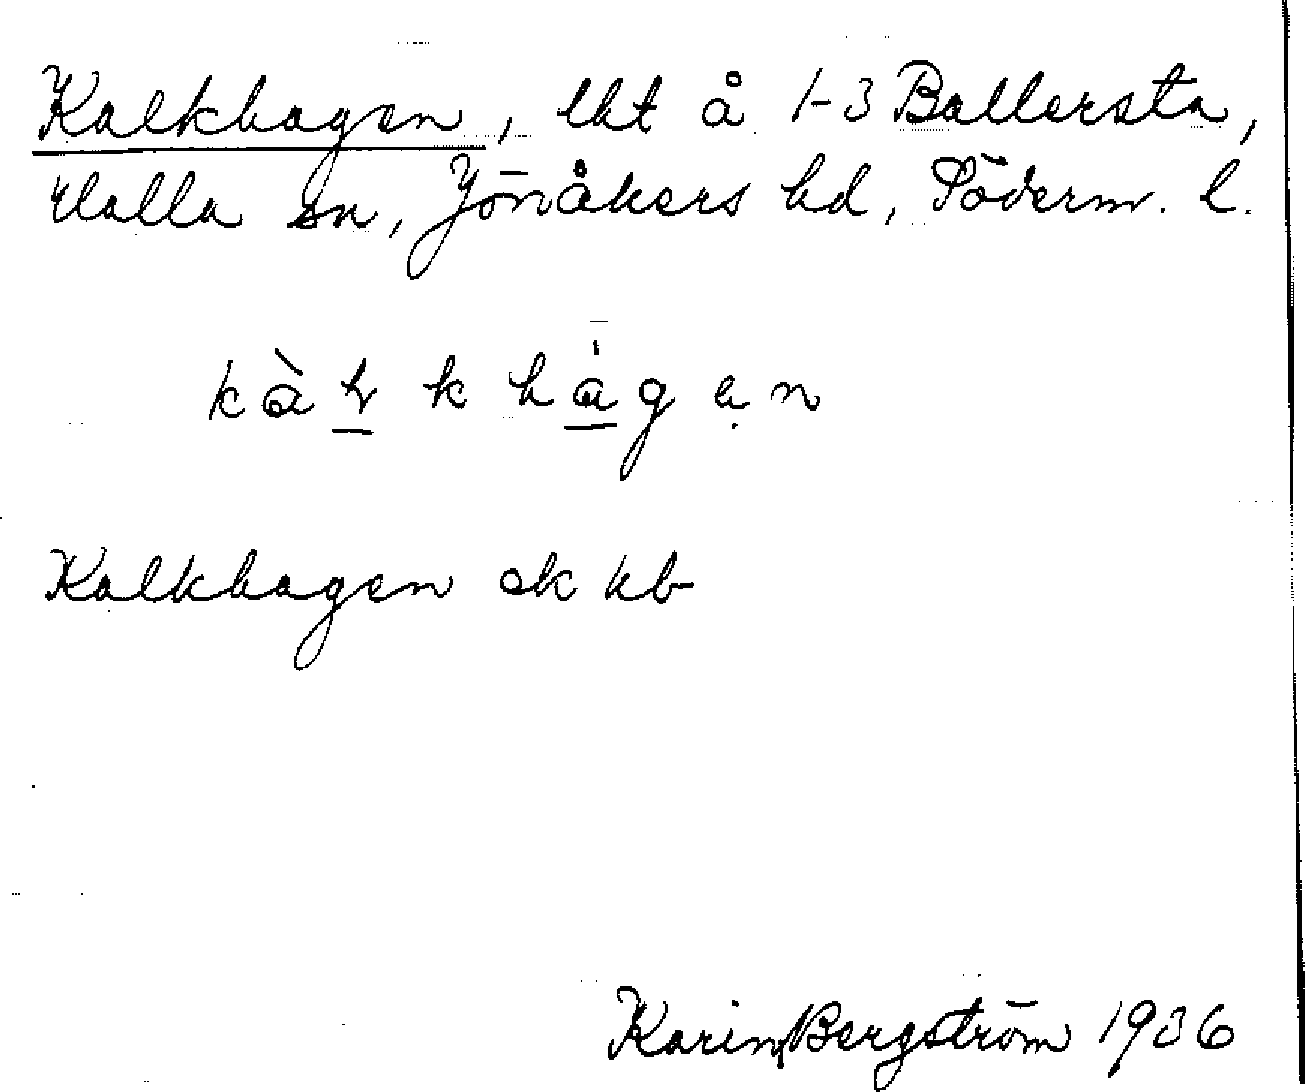 Kalkhagen, lht å 1-3 Ballersta,
Halla sn, Jönåkers hd, Söderm. l.
Kalkhagen ek kb
Karin Bergström 1936